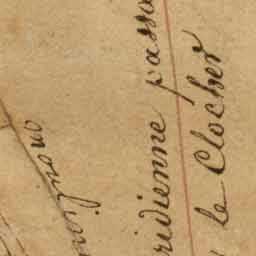 ridienne passa
le Clocher